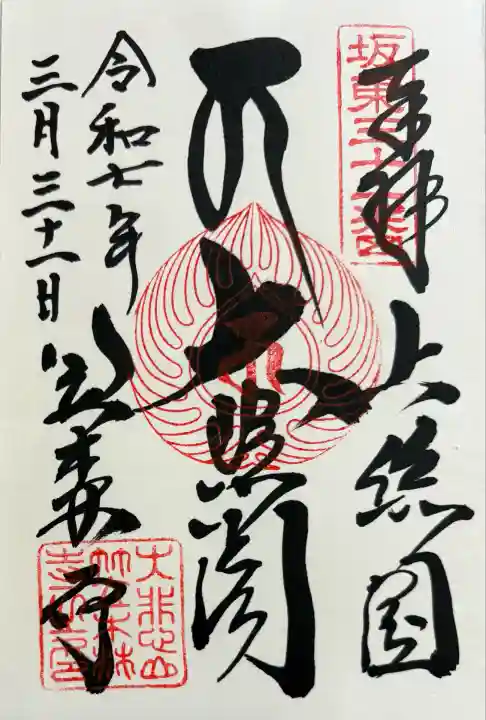 坂東三十一番
奉拝
上総国
大照閣
令和七年
三月三十一日
笠森寺
大悲山
笠森